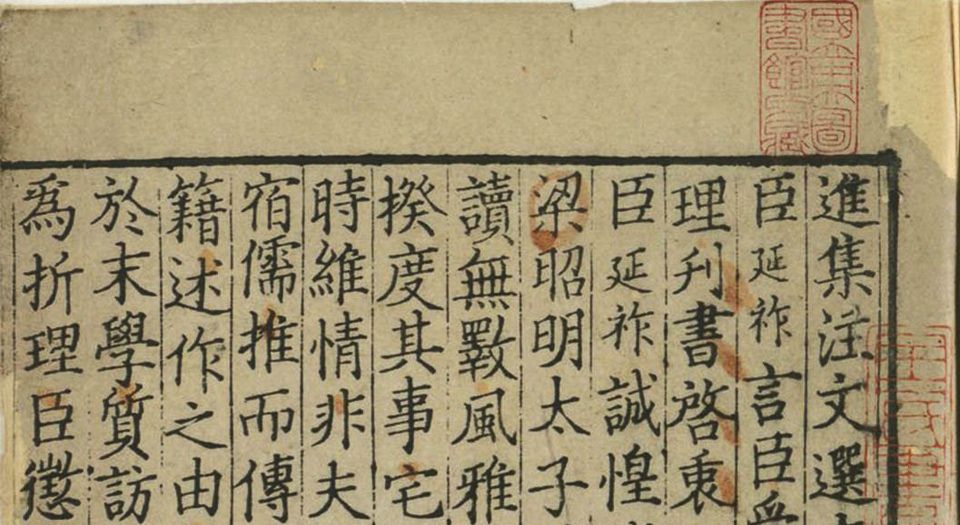 進集注文選
臣延祚言臣
理刋書啓衷
臣延祚誠惶
梁昭明太子
讀無斁風雅
揆度其事宅
時維情非夫
宿儒推而傳
籍述作之由
於末學質訪
爲折理臣懲